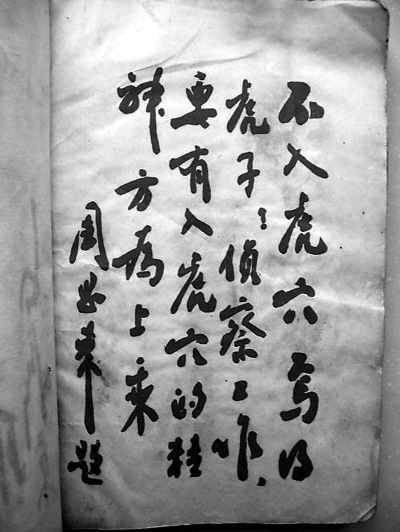 不入虎穴焉得
虎子;偵察工作,
要有入虎穴的精
神方為上乘
周恩來題